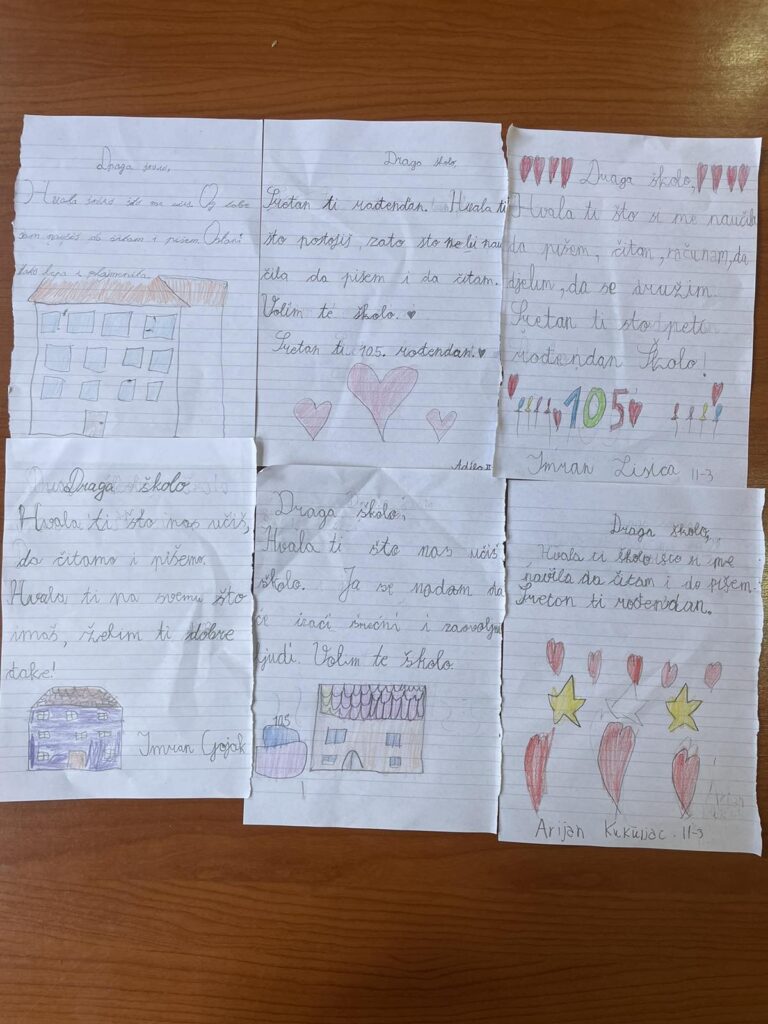 Draga školo,
Hvala školo što me učiš Od tebe
sam naučio da čitam i pišem Ostani
tako lepa i
Draga školo,
Sretan ti rođendan. Hvala ti
što postojiš, zato što ne bi nau
čila da pišem i da čitam.
Volim te školo. ♥
Sretan ti 105. rođendan. ♥
Adila II
Draga školo,
Hvala ti što si me naučila
da pišem, čitam, računam, da
djelim, da se družim.
Sretan ti sto peti
rođendan Školo!
105
Imran II-3
Draga školo
Hvala ti što nas učiš,
da čitamo i pišemo.
Hvala ti na svemu što
imaš, želim ti dobre
đake!
Imran Gojak
Draga školo,
Hvala ti što nas učiš
školo. Ja se nadam da
će izaći srećni i zadovoljni
ljudi. Volim te školo
105
Draga školo,
Hvala ti školo što si me
naučila da čitam i da pišem.
Sretan ti rođendan.
Arijan II-3